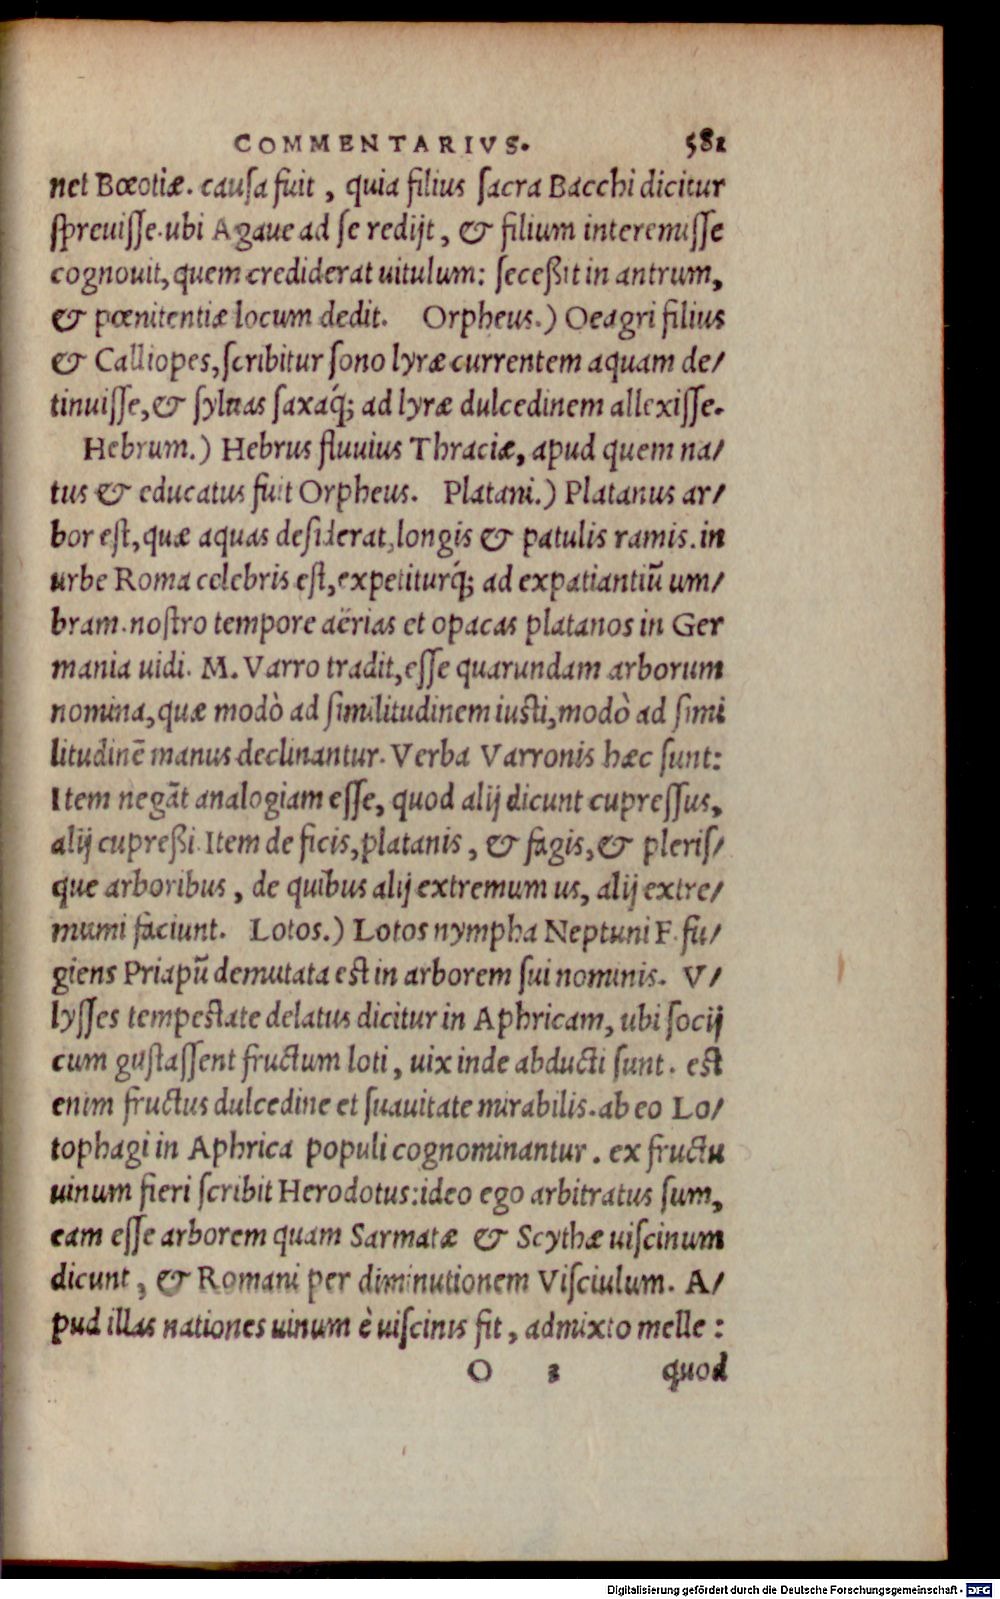 COMMENTARIVS. 581
net Bœotiæ. causa fuit, quia filius sacra Bacchi dicitur
spreuisse. ubi Agaue ad se redijt, & filium interemisse
cognouit, quem crediderat uitulum: seceßit in antrum,
& pœnitentiæ locum dedit. Orpheus.) Oeagri filius
& Calliopes, scribitur sono lyræ currentem aquam de/
tinuisse, & syluas saxaq́; ad lyræ dulcedinem allexisse.
Hebrum.) Hebrus fluuius Thraciæ, apud quem na/
tus & educatus fuit Orpheus. Platani.) Platanus ar/
bor est, quæ aquas desiderat, longis & patulis ramis. in
urbe Roma celebris est, expetiturq́; ad expatiantiũ um/
bram. nostro tempore aërias et opacas platanos in Ger
mania uidi. M. Varro tradit, esse quarundam arborum
nomina, quæ modò ad similitudinem iusti, modò ad simi
litudinẽ manus declinantur. Verba Varronis hæc sunt:
Item negãt analogiam esse, quod alij dicunt cupressus,
alij cupreßi. Item de ficis, platanis, & fagis, & pleris/
que arboribus, de quibus alij extremum us, alij extre/
mum i faciunt. Lotos.) Lotos nympha Neptuni F. fu/
giens Priapũ demutata est in arborem sui nominis. V/
lysses tempestate delatus dicitur in Aphricam, ubi socij
cum gustassent fructum loti, uix inde abducti sunt. est
enim fructus dulcedine et suauitate mirabilis. ab eo Lo/
tophagi in Aphrica populi cognominantur. ex fructu
uinum fieri scribit Herodotus: ideo ego arbitratus sum,
eam esse arborem quam Sarmatæ & Scythæ uiscinum
dicunt, & Romani per diminutionem Visciulum. A/
pud illas nationes uinum è uiscinis fit, admixto melle:
O 3 quod
Digitalisierung gefördert durch die Deutsche Forschungsgemeinschaft - DFG